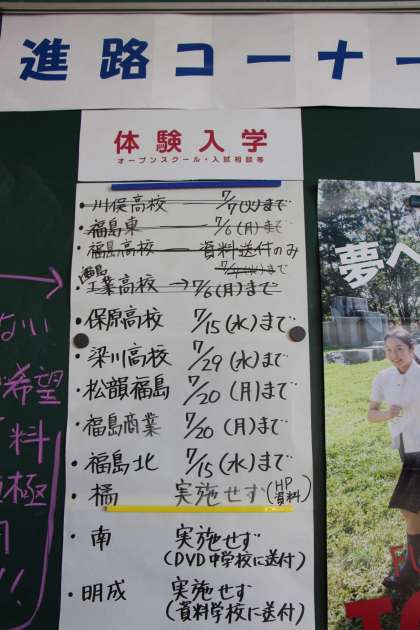 進路コーナー
体験入学
オープンスクール・入試相談等
・川俣高校 7/7(火)まで
・福島東 7/6(月)まで
・福島高校 資料送付のみ
・福島工業高校→ 7/6(月)まで
・保原高校 7/15(水)まで
・梁川高校 7/29(水)まで
・松韻福島 7/20(月)まで
・福島商業 7/20(月)まで
・福島北 7/15(水)まで
・橘 実施せず(HP資料)
・南 実施せず
(DVD中学校に送付)
・明成 実施せず
(資料学校に送付)
ない
希望
料
極
夢へ